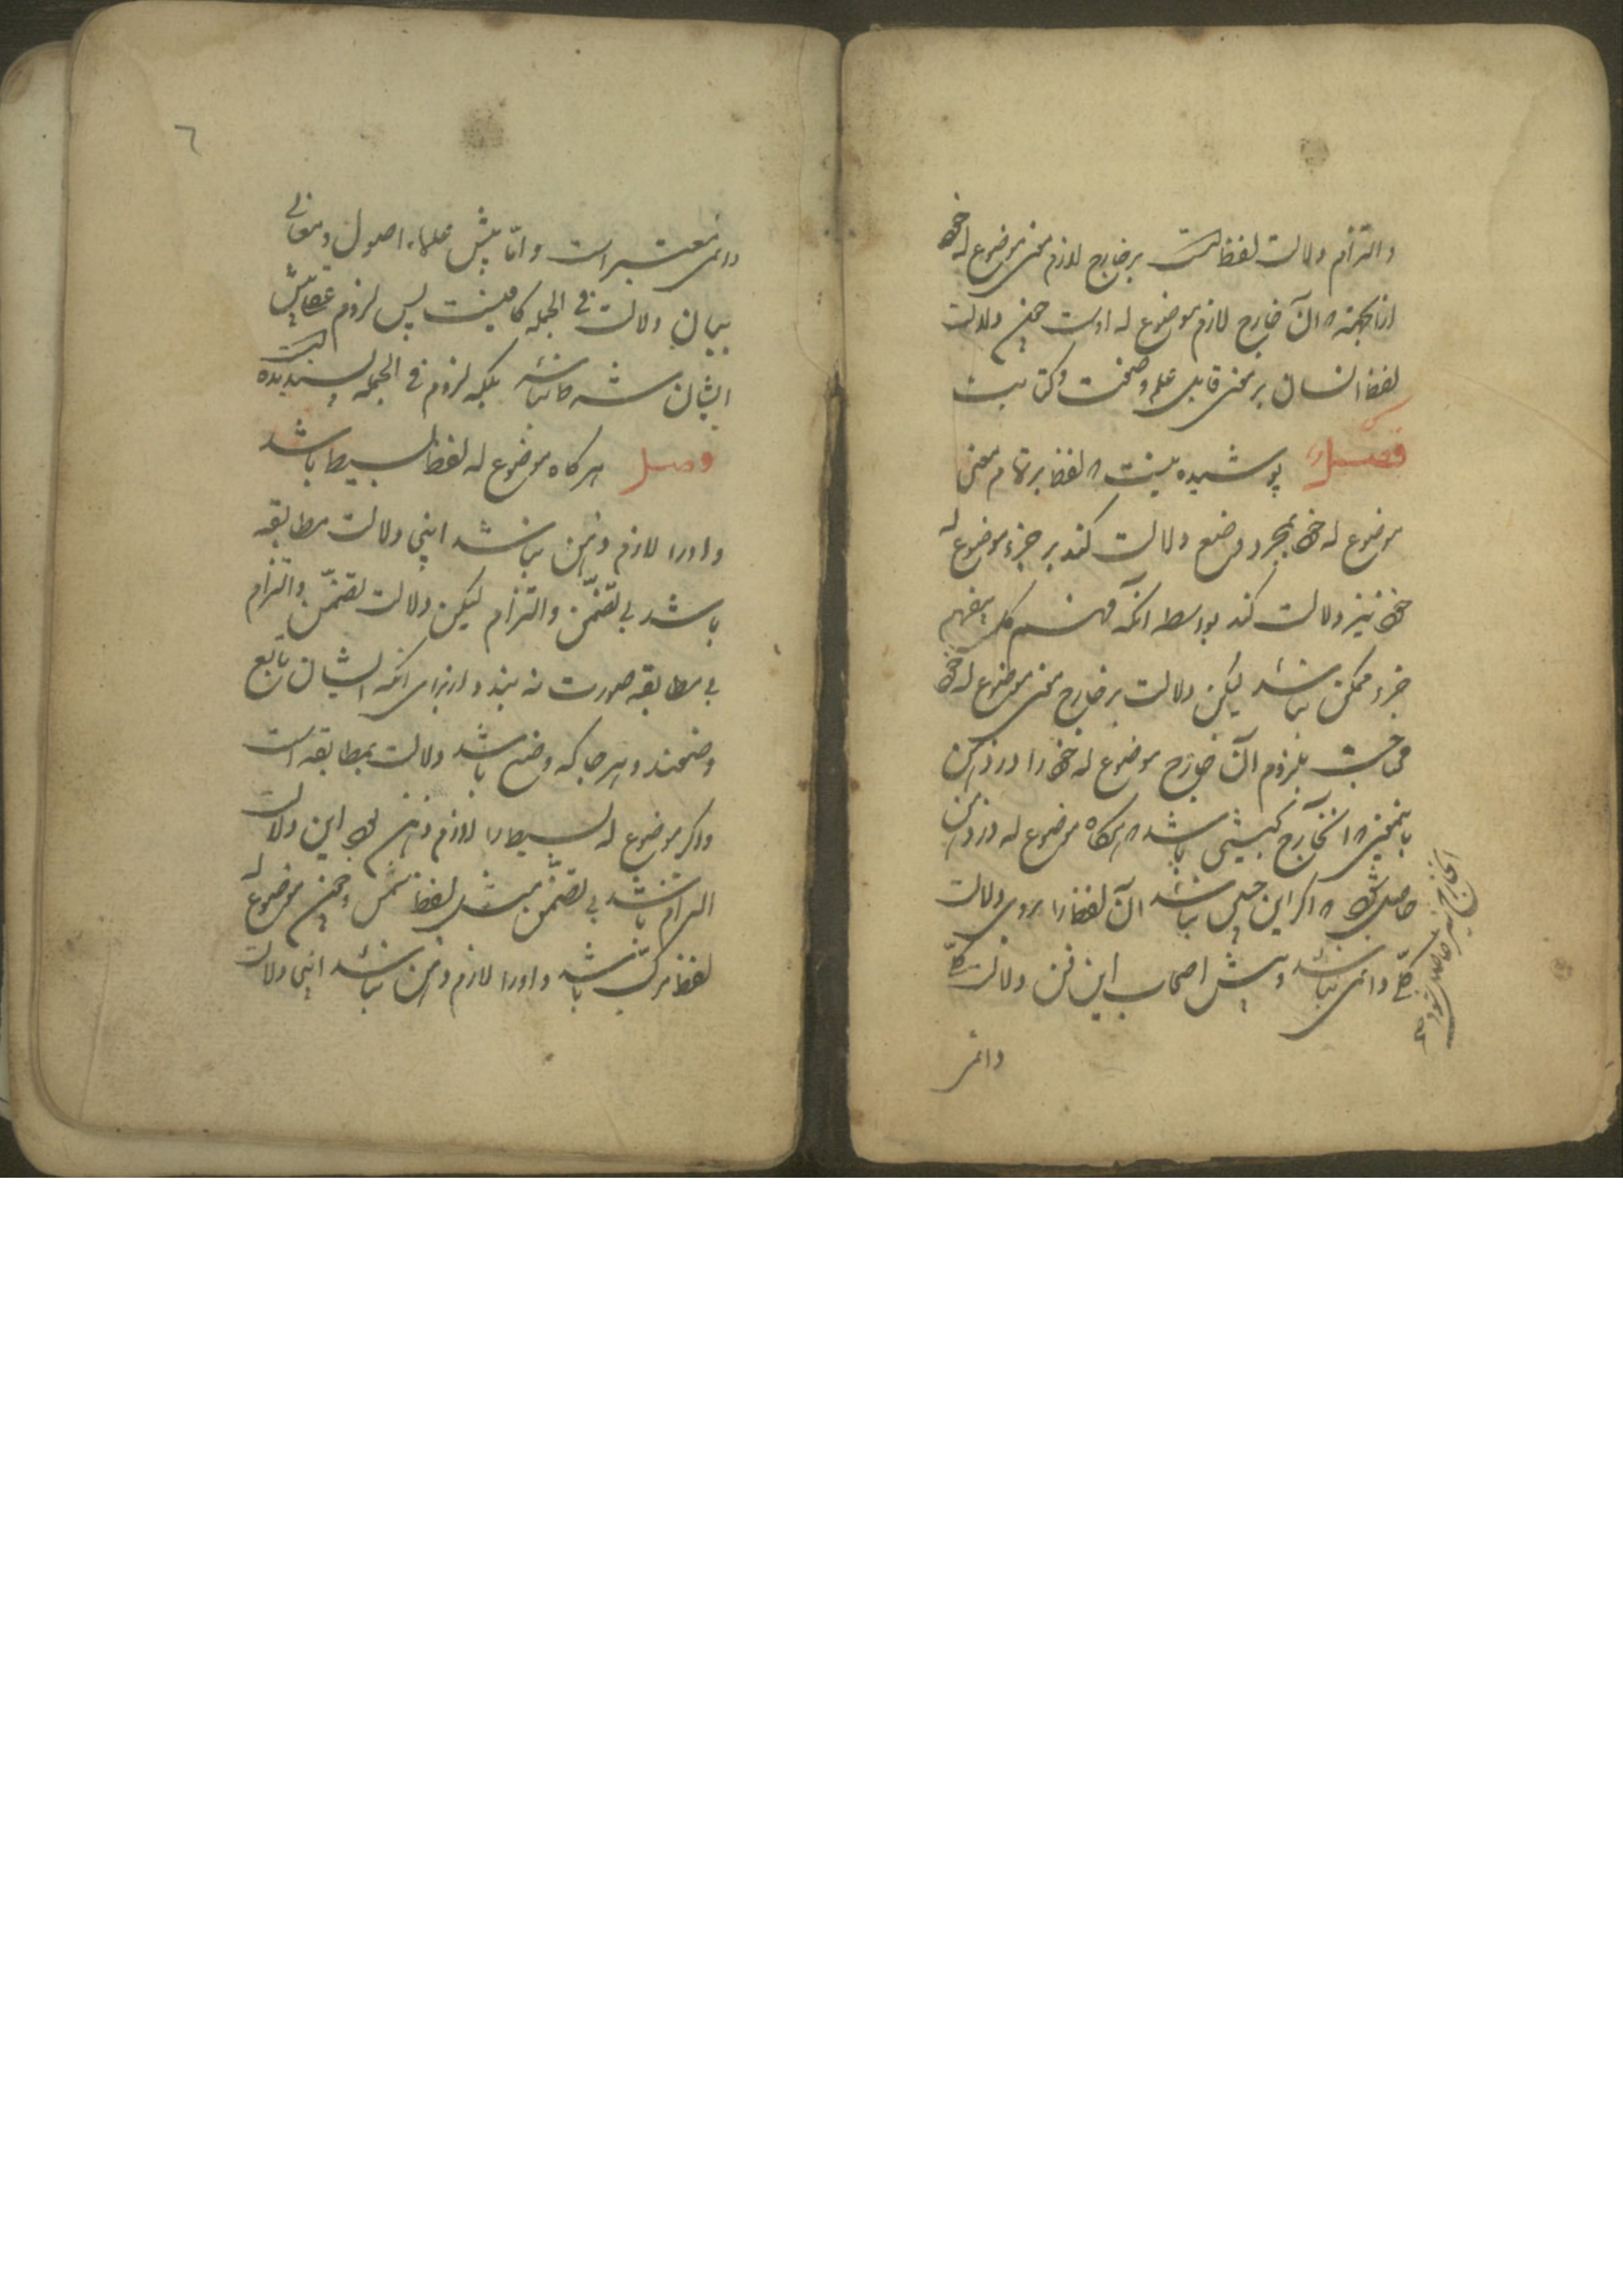 والتزام دلالت لفظ است بر خارج لازم معنی موضوع له خود
ازان جهت که آن خارج لازم موضوع له اوست چون دلالت
لفظ انسان بر معنی قابل علم و صنعت و کتابت
فصل پوشیده نیست که لفظ بر تمام معنی
موضوع له خود بمجرد وضع دلالت کند بر جزء موضوع له
خود نیز دلالت کند بواسطه آنکه فهم کل بیفهم
جزء ممکن نباشد لیکن دلالت بر خارج معنی موضوع له خود
محتاجست بلزوم آن خارج موضوع له خود را در ذهن
باینمعنی که آنخارج بحیثیتی باشد که هرکاه موضوع له در ذهن
حاصل شود که اگر این چنین نباشد آن لفظ را بروی دلالت
کلی دائمی نباشد و پیش اصحاب این فن دلالت کلی
آنخارج نیز حاصل شود صح
دائمی
٦
دائمی معتبر است و امّا پیش علماء اصول و معانی
بیان دلالت فی الجمله کافیست پس لزوم عقلی پیش
ایشان شرط نباشد بلکه لزوم فی الجمله پسندیده است
فصل هرکاه موضوع له لفظ بسیط باشد
و او را لازم ذهن نباشد اینجا دلالت مطابقه
باشد بی تضمّن و التزام لیکن دلالت تضمّن و التزام
بی مطابقه صورت نه بندد از برای آنکه ایشان تابع
وضعند و هر جا که وضع باشد دلالت بمطابقه است
و اگر موضوع له بسیط را لازم ذهنی بود این دلالت
التزام باشد بی تضمّن مثل لفظ شمس و چون موضوع له
لفظ مرکّب باشد و او را لازم ذهن نباشد اینجا دلالت